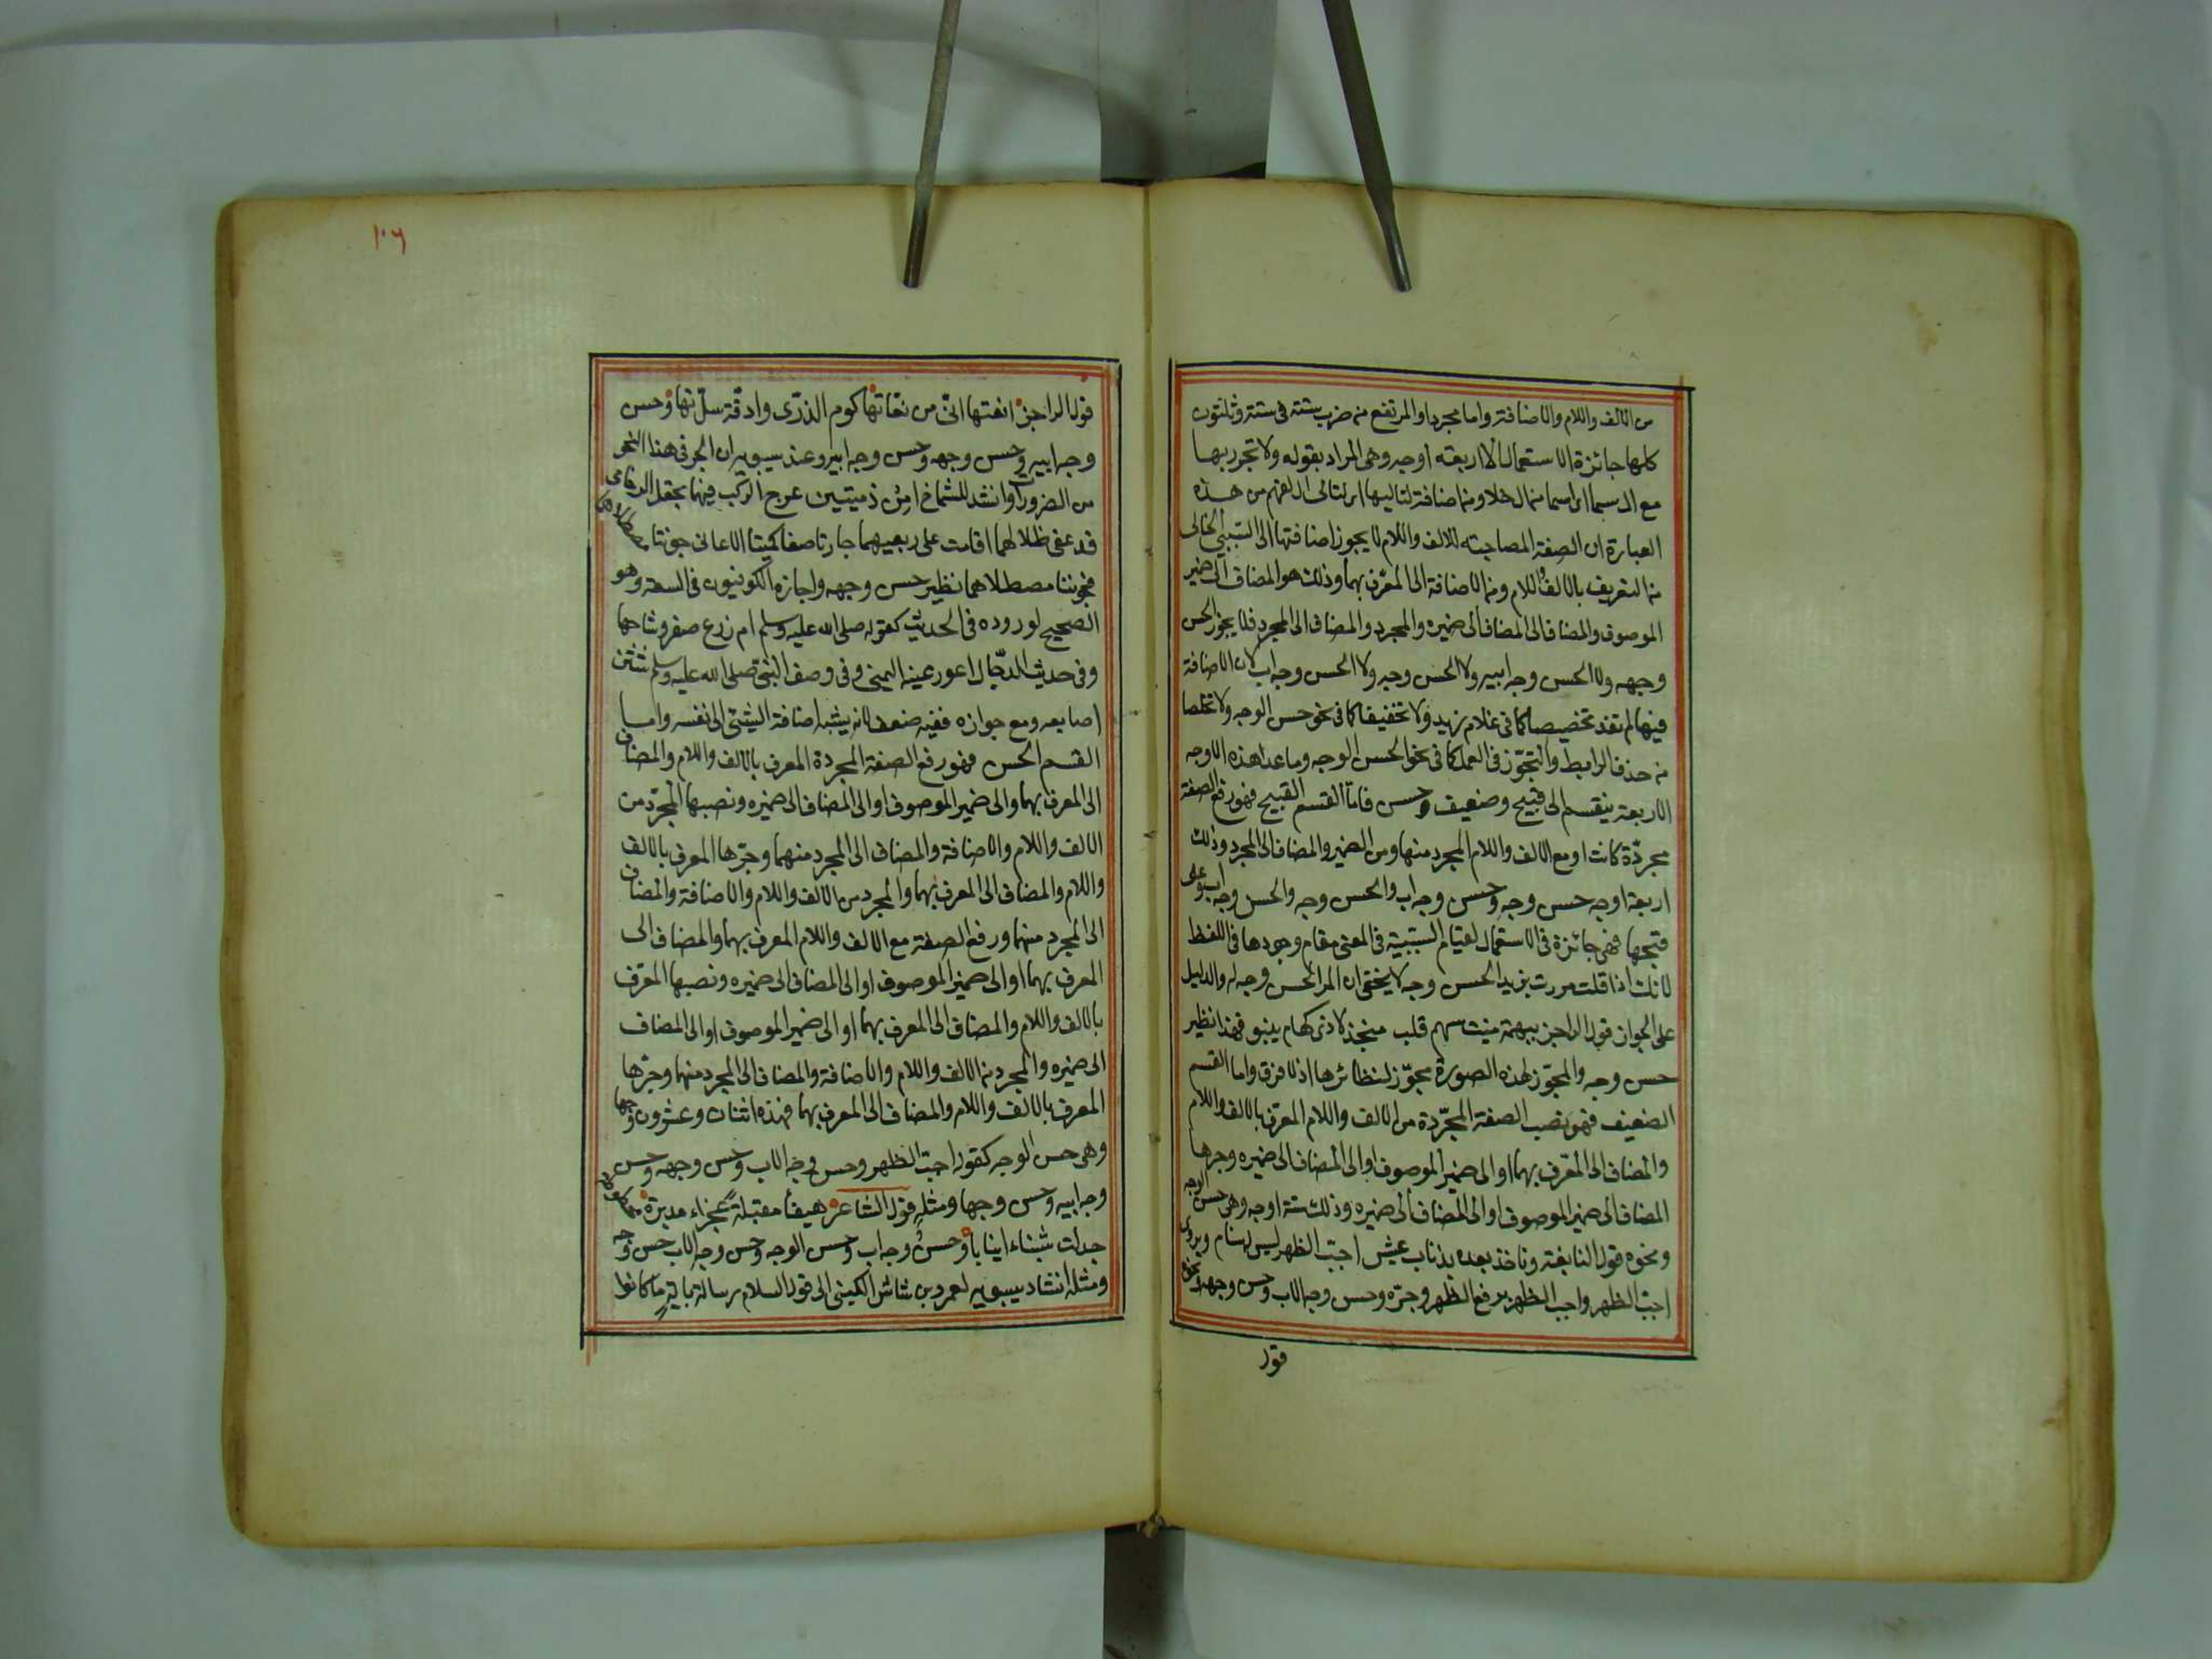 من الالف واللام والاضافة واما مجردا والمرتفع من ضرب ستة فى ستة وثلثون
كلها جائزة الاستعمال الا اربعته اوجه وهى المراد بقوله ولا تجرر بها
مع ال سما من ال خلا ومن اضافة لتاليها اى لتالى ال لفهم من هذه
العبارة ان الصفة المصاحبته للالف واللام لا يجوز اضافتها الى السببى الخالى
من التعريف بالالف واللام ومن الاضافة الى المعرّف بهما وذلك هو المضاف الى ضمير
الموصوف والمضاف الى المضاف الى ضميره والمجرد والمضاف الى المجرد فلا يجوز الحسن
وجهه ولا الحسن وجه ابيه ولا الحسن وجه ولا الحسن وجه اب لان الاضافة
فيها لم تفد تخصيصا كما فى غلام زيد ولا تخفيفا كما فى نحو حسن الوجه ولا تخلصا
من حذف الرابط والتجوّز فى العمل كما فى نحو الحسن الوجه وما عدا هذه الاوجه
الاربعة ينقسم الى قبيح وضعيف وحسن فامّا القسم القبيح فهو رفع الصفة
مجردّة كانت او مع الالف واللام المجرد منها ومن الضمير والمضاف الى المجرد وذلك
اربعة اوجه حسن وجه وحسن وجه اب والحسن وجه والحسن وجه اب وعلى
قبحها فهى جائزة فى الاستعمال لقيام السببية فى المعنى مقام وجودها فى اللفظ
لانك اذا قلت مررت بزيد الحسن وجه لا يخفى ان المراد الحسن وجه له والدليل
على الجواز قول الراجز ببهمة منيت سهم قلب منجذ لا ذى كهام ينبو فهذا نظير
حسن وجه والمجوّز لهذه الصورة مجوّز لنظائرها اذ لا فرق واما القسم
الضعيف فهو نصب الصفة المجرّدة من الالف واللام المعرّف بالالف واللام
والمضاف الى المعّرف بهما او الى ضمير الموصوف او الى المضاف الى ضميره وجرها
المضاف الى ضمير الموصوف او الى المضاف الى ضميره وذلك ستة اوجه وهى حسن الوجه
ونحوه قول النابغة وناخذ بعده بذناب عيش اجبّ الظهر ليس له سنام ويروى
اجبّ الظهر واجب الظهر برفع الظهر وجرّه وحسن وجه الاب وحسن وجهه
قول
١٠٦
قول الراجز انعتها انّى من نعّاتها كوم الذرّى وادقة سرّاتها وحسن
وجه ابيه وحسن وجهه وحسن وجه ابيه وعند سيبويه ان الجر فى هذا النحو
من الضرورات وانشد للشماخ امن دمنتين عرج الركب فيهما بحقل الرخامى
قد عفى طلالهما اقامت على ربعيهما جارتا صفا كميتا الاعالى جونتا مصطلاهما
فجونتا مصطلاهما نظير حسن وجهه واجازه الكوفيون فى السعة وهو
الصحيح لوروده فى الحديث كقوله صلى الله عليه وسلم ام زرع صفر وشاحها
وفى حديث الدجّال اعور عينه اليمنى وفى وصف النبى صلى الله عليه وسلم شثن
اصابعه ومع جوازه ففيه ضعف لانه يشبه اضافة الشئ الى نفسه واما
القسم الحسن فهو رفع الصفة المجردة المعرف بالالف واللام والمضاف
الى المعرف بهما والى ضمير الموصوف او الى المضاف الى ضميره ونصبها المجرّد من
الالف واللام والاضافة والمضاف الى المجرد منهما وجرّها المعرف بالالف
واللام والمضاف الى المعرف بهما والمجرد من الالف واللام والاضافة والمضاف
الى المجرد منهما ورفع الصفة مع الالف واللام المعرف بهما والمضاف الى
المعرف بهما او الى ضمير الموصوف او الى المضاف الى ضميره ونصبها المعّرف
بالالف واللام والمضاف الى المعرف بهما او الى ضمير الموصوف او الى المضاف
الى ضميره والمجرد من الالف واللام والاضافة والمضاف الى المجرد منها وجرّها
المعرف بالالف واللام والمضاف الى المعرف بهما فهذه اثنان وعشرون وجها
وهى حسن الوجه كقوله اجبّ الظهر وحسن وجه الاب وحسن وجهه وحسن
وجه ابيه وحسن وجها ومثله قول الشاعر هيفأ مقبلة عجزاء مدبرة
جدلت شنباء انيابا وحسن وجه اب وحسن الوجه وحسن وجه الاب حسن وجه
ومثله انشاد سيبويه لعمرو بن شاش الكينى الى قول السلام رسالة باية ما كانوا